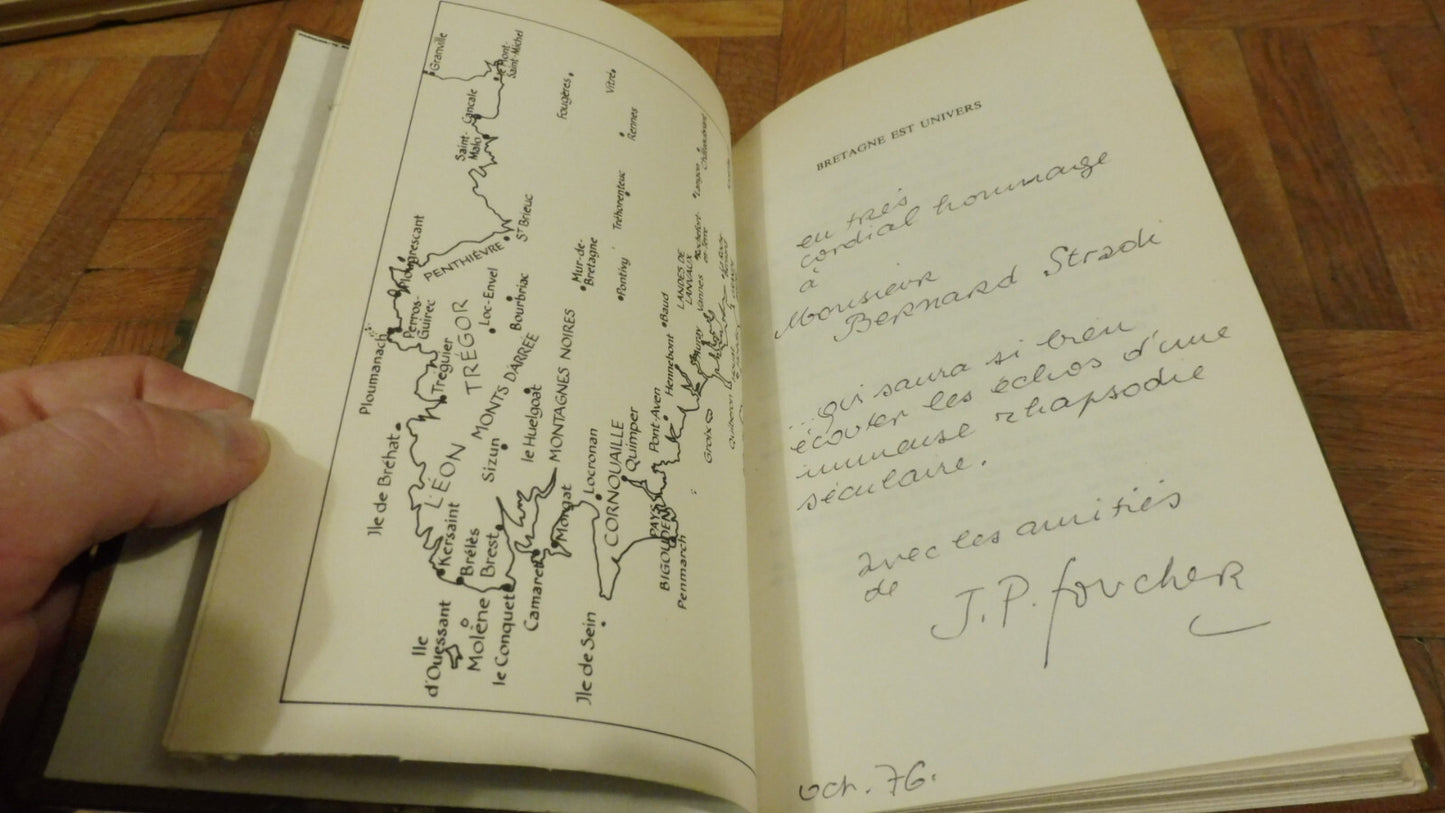 Granville
le Mont-
Saint-Michel
Cancale
Saint-
Malo
Fougères
Vitré
Rennes
Ploumanach
Plougrescant
PENTHIÈVRE
St Brieuc
Perros-
Guirec
Tréguier
TRÉGOR
Loc-Envel
Bourbriac
Mur-de-
Bretagne
Pontivy
Tréhorenteuc
Ile de Bréhat
L'ÉON
MONTS D'ARRÉE
Sizun
le Huelgoat
MONTAGNES NOIRES
Baud
LANDES DE
LANVAUX
Vannes
Rochefort-
en-Terre
Langon
Châteaubriant
Hennebont
Pont-Aven
Groix
Quiberon
Kersaint
Brélès
Brest
Ile
d'Ouessant
Molène
le Conquet
Camaret
Morgat
Locronan
CORNOUAILLE
Quimper
PAYS
BIGOUDEN
Penmarch
Ile de Sein
BRETAGNE EST UNIVERS
en très
cordial hommage
à
Monsieur
Bernard Strack
...qui saura si bien
écouter les échos d'une
immense rhapsodie
séculaire.
avec les amitiés
de
J. P. foucher
oct. 76.